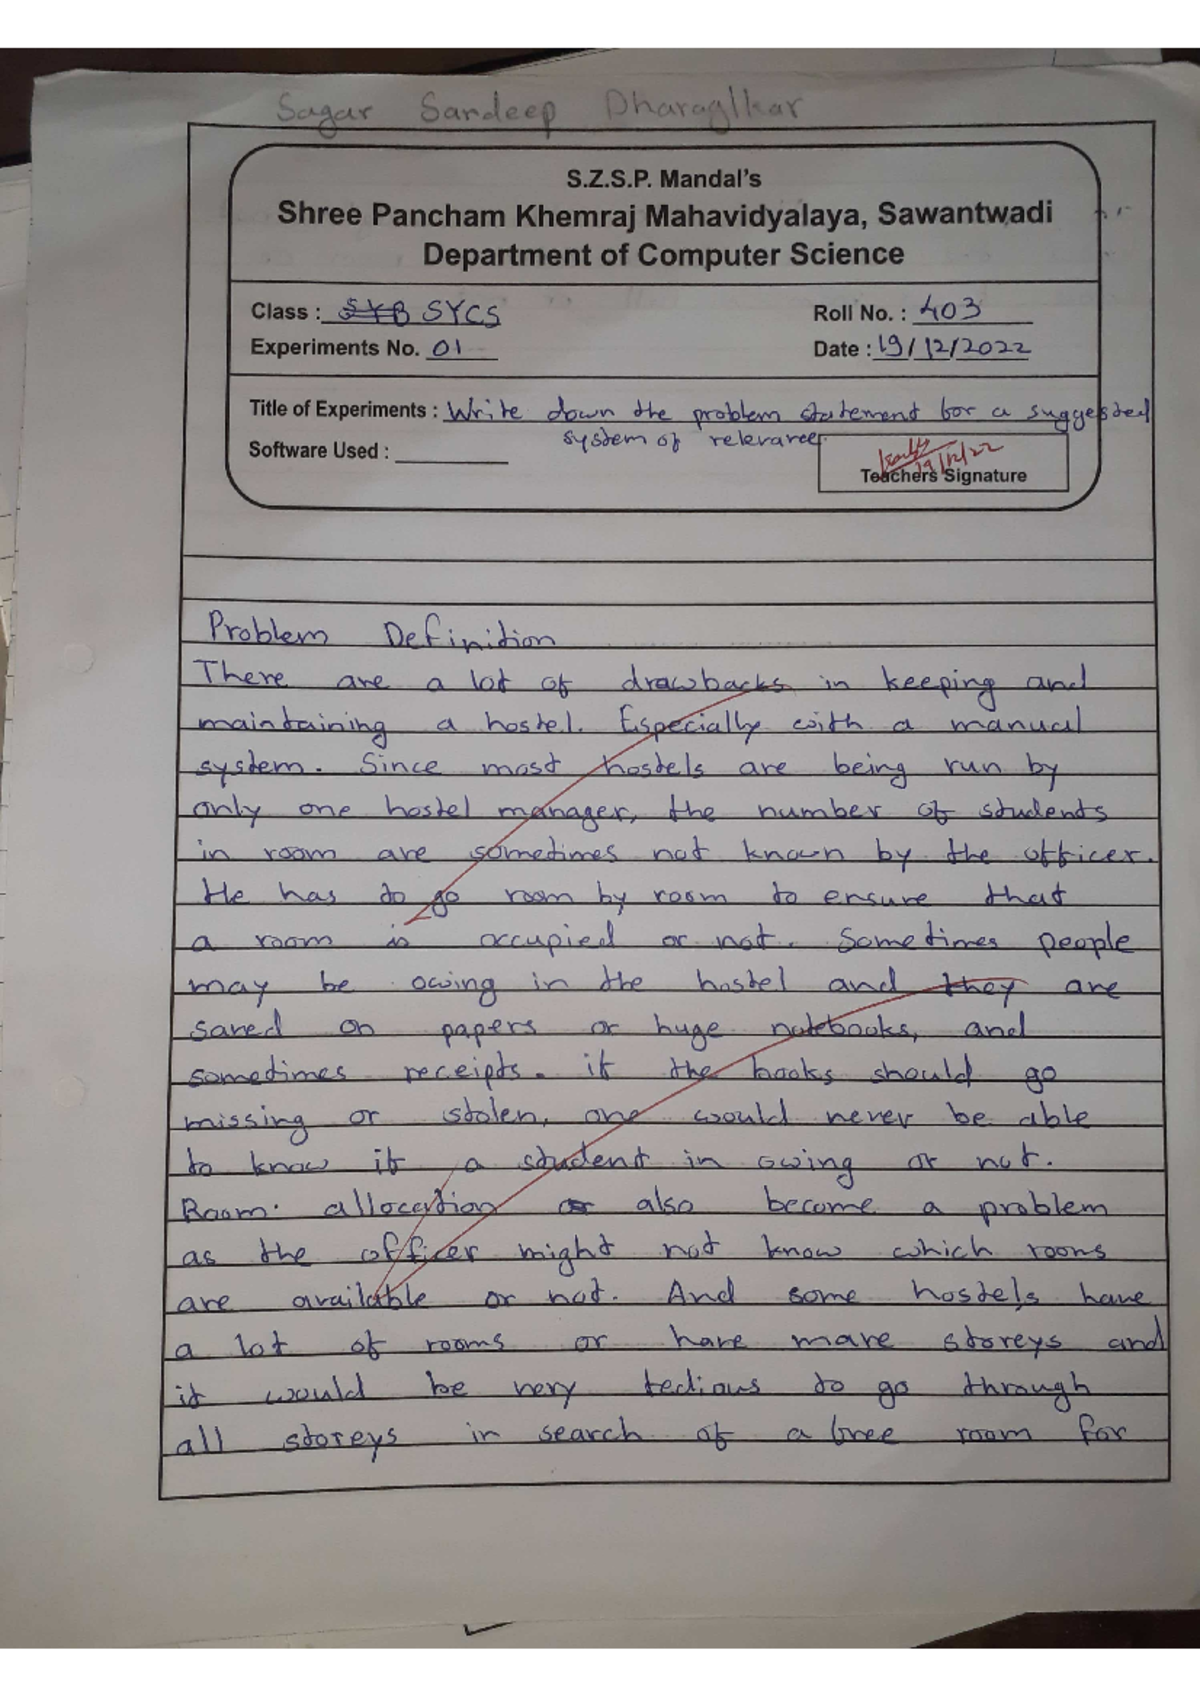 Sagar Sandeep Dharaglkar
S.Z.S.P. Mandal's
Shree Pancham Khemraj Mahavidyalaya, Sawantwadi
Department of Computer Science
Class : SYB SYCS Roll No. : 403
Experiments No. 01 Date : 19/12/2022
Title of Experiments : Write down the problem statement for a suggested
system of relevance.
Software Used :
19/12/22
Teachers Signature
Problem Definition
There are a lot of drawbacks in keeping and
maintaining a hostel. Especially with a manual
system. Since most hostels are being run by
only one hostel manager, the number of students
in room are sometimes not known by the officer.
He has to go room by room to ensure that
a room is occupied or not. Sometimes people
may be owing in the hostel and they are
saved on papers or huge notebooks, and
sometimes receipts. if the books should go
missing or stolen, one would never be able
to know if a student in owing or not.
Room allocation also become a problem
as the officer might not know which rooms
are available or not. And some hostels have
a lot of rooms or have more storeys and
it would be very tedious to go through
all storeys in search of a free room for